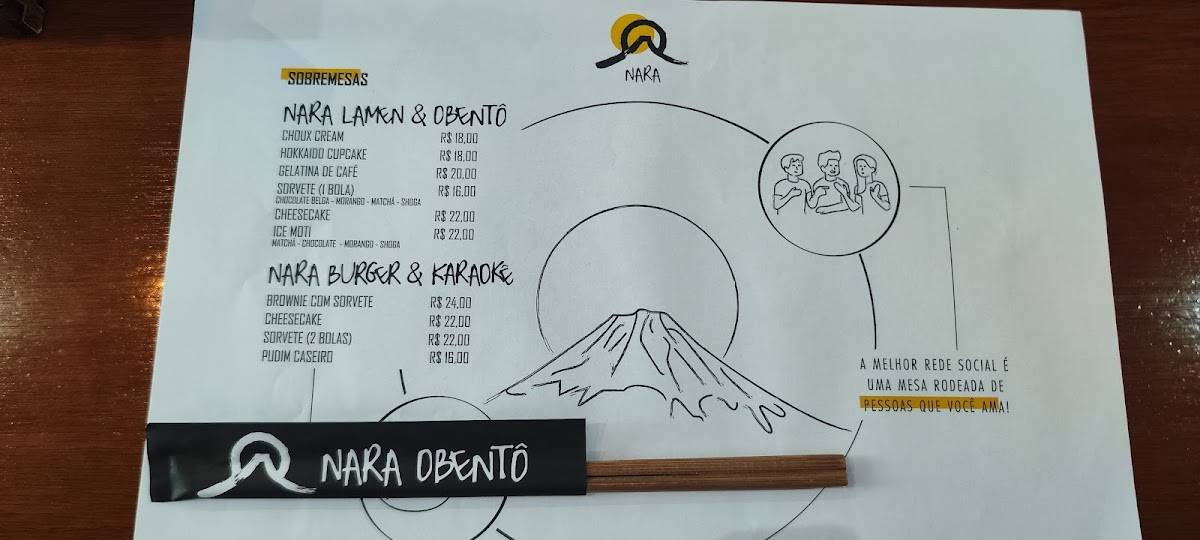 NARA
SOBREMESAS
NARA LAMEN & OBENTÔ
CHOUX CREAM R$ 18,00
HOKKAIDO CUPCAKE R$ 18,00
GELATINA DE CAFÉ R$ 20,00
SORVETE (1 BOLA) R$ 16,00
CHOCOLATE BELGA - MORANGO - MATCHÁ - SHOGA
CHEESECAKE R$ 22,00
ICE MOTI R$ 22,00
MATCHÁ - CHOCOLATE - MORANGO - SHOGA
NARA BURGER & KARAOKÊ
BROWNIE COM SORVETE R$ 24,00
CHEESECAKE R$ 22,00
SORVETE (2 BOLAS) R$ 22,00
PUDIM CASEIRO R$ 16,00
A MELHOR REDE SOCIAL É
UMA MESA RODEADA DE
PESSOAS QUE VOCÊ AMA!
NARA OBENTÔ